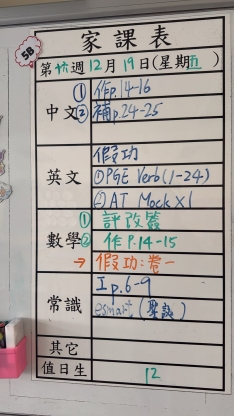 5B
家課表
第十六週12月19日(星期五)
中文
① 作p.14-16
② 補p.24-25
英文
假功
① PGE Verb (1-24)
② AT Mock x1
數學
① 評改簽
② 作P.14-15
→ 假功:卷一
常識
工p.6-9
esmart
其它
值日生
12